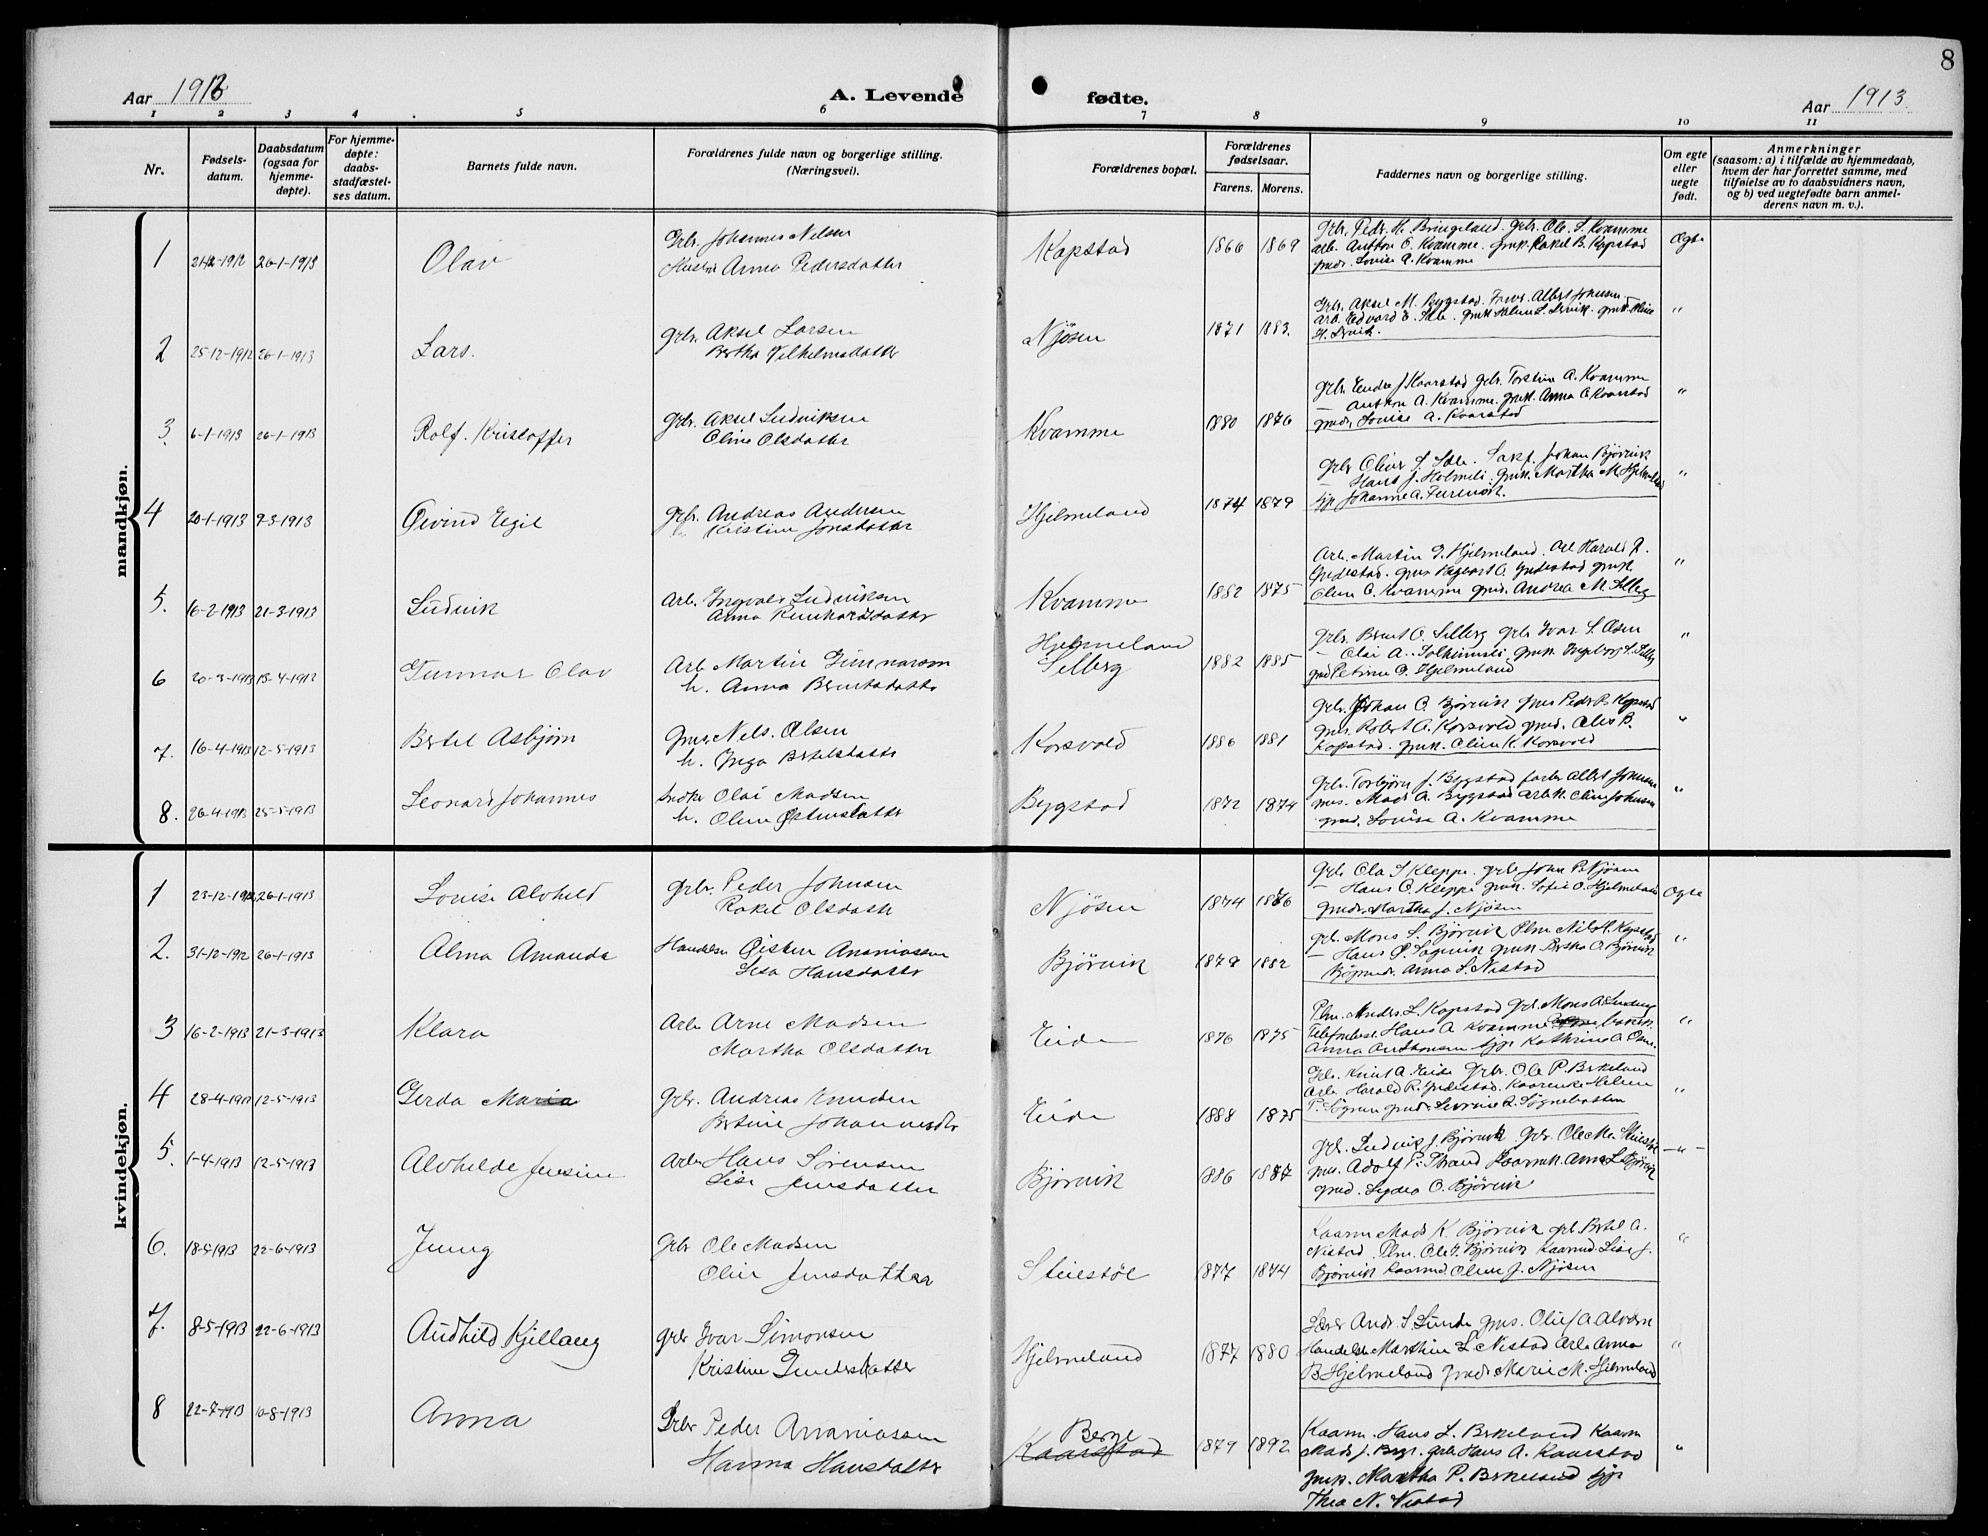 8
Aar 1913
A. Levende
fødte.
Aar 1913
1 2 3 4 5 6 7 8 9 10 11
Nr.
Fødsels-
datum.
Daabsdatum
(ogsaa for
hjemme-
døpte).
For hjemme-
døpte:
daabs-
stadfæstel-
ses datum.
Barnets fulde navn.
Forældrenes fulde navn og borgerlige stilling.
(Næringsvei).
Forældrenes bopæl.
Forældrenes
fødselsaar.
Farens. Morens.
Faddernes navn og borgerlige stilling.
Om egte
eller
uegte
født.
Anmerkninger
(saasom: a) i tilfælde av hjemmedaab,
hvem der har forrettet samme, med
tilføielse av to daabsvidners navn,
og b) ved uegtefødte barn anmel-
derens navn m. v.).
mandkjøn.
1 21-12-1912 26-1-1913 Olav Grbr. Johannes Nelsen
Hustru Anna Pedersdatter
Kapstad 1866 1869 Grbr. Peder K. Bringeland. Grbr. Ole S. Kvamme
arb. Anthon O. Kvamme. gmk. Rakel B. Kapstad
gmdr. Louise A. Kvamme
Ægte
2 25-12-1912 26-1-1913 Lars. Grbr. Aksel Larsen
Bertha Vilhelmsdatter
Njøsen 1871 1883. Grbr. Aksel M. Bygstad. Albert Johnsen
Arb. Edvard E.
"
3. 6-1-1913 26-1-1913 Rolf. Kristoffer Grbr. Aksel Ludviksen
Oline Olsdatter
Kvamme 1880 1876 Grbr. Endre J. Kaarstad Grbr. Torstein A. Kvamme
— Anthon A. Kvamme. gmk. Anna O. Kaarstad
gmdr. Louise A. Kaarstad
"
4 20-1-1913 9-3-1913 Øivind Egil Grbr. Andreas Andersen
Kristine Jonsdatter
Hjelmeland 1874 1879 Grbr. Oliver S. Johan Bjørvik
— Hans J. Holmeli. gmk. Martha M. Hjelmeland
Johanne A.
"
5. 16-2-1913 21-3-1913 Ludvik Arb. Ingvald Ludviksen
Anna Reinhardsdatter
Kvamme 1882 1875 Arb. Martin G. Hjelmeland. Arb. Harald R.
Indrestad. gms. A. Indrestad gmk.
Oline O. Kvamme gmd. Andrea M. Selberg
"
6 20-3-1913 13-4-1912 Gunnar Olav Arb. Martin Gunnarson
h. Anna Berntsdatter
Hjelmeland
Selberg 1882 1885 Grbr. Bernt O. Selberg Grbr. Ivar S. Olsen
— Olai A. Solheimsli gmk. Ingeborg
gmd. Petrine O. Hjelmeland
"
7. 16-4-1913 12-5-1913 Bertel Asbjørn Gms. Nels. Olsen
h. Inga Bertelsdatter
Korsvold 1886 1881 Grbr. Johan O. Bjørvik gms. Peder B. Kapstad
gms. Robert A. Korsvold gmd. B.
Kapstad. gmk. Oline K. Korsvold
"
8. 26-4-1913 25-5-1913 Leonard Johannes Olai Madsen
h. Oline Østensdatter
Bygstad 1872 1874 Grbr. Torbjørn J. Bygstad Albert Johnsen
gms. Mads A. Bygstad Arb. k. Oline Johnsen
gmd. Louise A. Kvamme
"
kvindekjøn.
1 23-12-1912 26-1-1913 Louise Alvhild Grbr. Peder Johnsen
Rakel Olsdatter
Njøsen 1874 1886 Grbr. Ola S. Kleppe. Grbr. John B. Njøsen
— Hans O. Kleppe gmk. Sofie O. Hjelmeland
gmdr. Martha J. Njøsen
Ægte
2. 31-12-1912 26-1-1913 Alma Amanda Handelsm. Øisten Ananiassen
Lisa Hansdatter
Bjørvik 1879 1882 Grbr. Mons S. Bjørvik Plm. Nils H. Kapstad
— Hans P. gmk. Bertha O. Bjørvik
gmdr. Anna L. Nistad
"
3 16-2-1913 21-3-1913 Klara Arb. Arne Madsen
Martha Olsdatter
Eide 1876 1875 Plm. Anders L. Kapstad Grbr. Mons A.
Hans A. Kvamme
Anna Anthonsen Kathrine A.
"
4 28-4-1913 12-5-1913 Gerda Maria Grbr. Andreas Knudsen
Bertine Johannesdtr
Eide 1888 1875 Grbr. Knut A. Eide Grbr. Ole P. Birkeland
Arb. Harald R. Indrestad. Helene
P. gmdr.
"
5. 1-4-1913 12-5-1913 Alvhilde Jensine Arb. Hans Sørensen
Lise Jensdatter
Bjørvik 1886 1887 Grbr. Ludvik J. Bjørvik Grbr. Ole M.
gms. Adolf P. Strand Anna L. Bjørvik
gmd. Lydia O. Bjørvik
— " —
6. 18-5-1913 22-6-1913 Jenny Grbr. Ole Madsen
Oline Jensdatter
Steiestøl 1877 1874 Kaarm. Mads K. Bjørvik grb. Bertel A.
Nistad. Plm. Ole J. Bjørvik Kaarmd. Lise J.
Bjørvik Kaarmd. Oline J. Njøsen
"
7. 8-5-1913 22-6-1913 Audhild Kjellaug Grbr. Ivar Simonsen
Kristine
Hjelmeland 1877 1880 Lærer Andr. S. Sunde gms. A. Alværn
Handelsb. Marthin L. Nistad Arb. Anna
B. Hjelmeland gmdr. Marie M. Hjelmeland
"
8 22-7-1913 10-8-1913 Anna Grbr. Peder Ananiassen
Hanna Hansdatter
Berge
Kaarstad 1879 1892 Kaarm. Hans L. Birkeland Kaarm.
Mads J. Berge. Grbr. Hans A. Kaarstad
gmk. Martha P. Birkeland
Thea N. Nistad
"